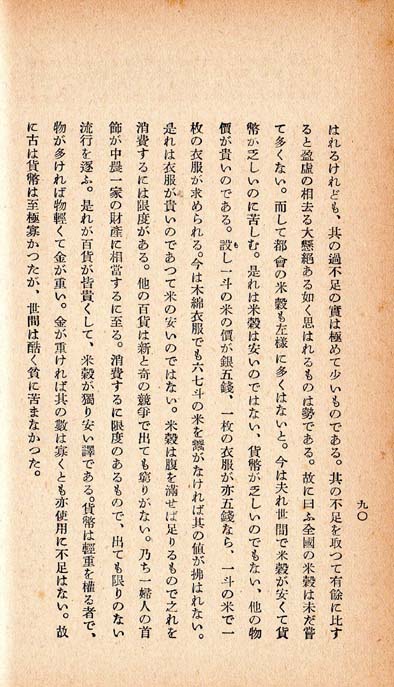 はれるけれども、其の過不足の實は極めて少いものである。其の不足を取つて有餘に比す
ると盈虛の相去る大懸絕ある如く思はれるものは勢である。故に曰ふ全國の米穀は未だ嘗
て多くない。而して都會の米穀も左樣に多くはないと。今は夫れ世間で米穀が安くて貨
幣が乏しいのに苦しむ。是れは米穀は安いのではない、貨幣が乏しいのでもない、他の物
價が貴いのである。設し一斗の米の價が銀五錢、一枚の衣服が亦五錢なら、一斗の米で一
枚の衣服が求められる。今は木綿衣服でも六七斗の米を糶がなければ其の値が拂はれない。
是れは衣服が貴いのであつて米の安いのではない。米穀は腹を滿せば足りるもので之れを
消費するには限度がある。他の百貨は新と奇の競爭で出ても窮りがない。乃ち一婦人の首
飾が中農一家の財產に相當するに至る。消費するに限度のあるもので、出ても限りのない
流行を逐ふ。是れが百貨が皆貴くして、米穀が獨り安い譯である。貨幣は輕重を權る者で、
物が多ければ物輕くて金が重い。金が重ければ其の數は寡くとも亦使用に不足はない。故
に古は貨幣は至極寡かつたが、世間は酷く貧に苦まなかつた。
九〇